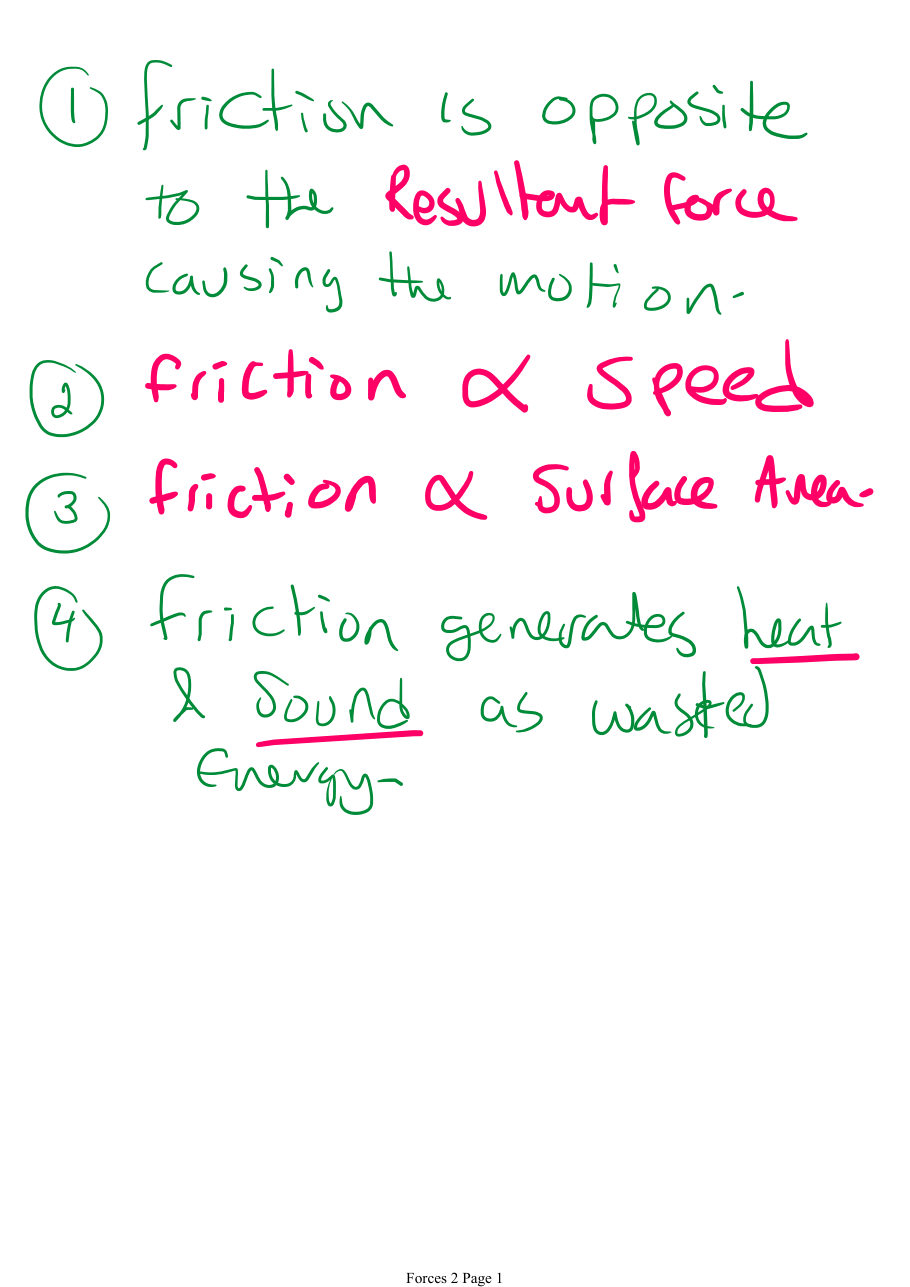 ① friction is opposite
to the Resultant force
causing the motion.
② friction ∝ speed
③ friction ∝ Surface Area.
④ friction generates heat
& Sound as wasted
Energy.
Forces 2 Page 1